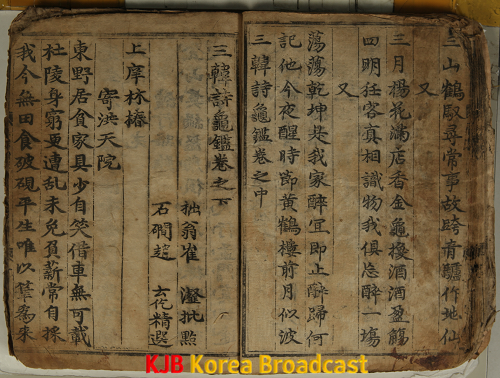 三山鶴馭尋常事故跨青驢作地仙
又
三月楊花滿店香金龜換酒酒盈觴
四明狂客真相識物我俱忘醉一場
又
蕩蕩乾坤是我家醉冝即止醉歸何
記他今夜醒時節黃鶴樓前月似波
三韓詩龜鑑卷之中
三韓詩龜鑑卷之下
拙翁崔 瀣批點
石磵趙 云仡精選
上庠林椿
寄洪天院
東野居貧家具少自笑借車無可載
杜陵身窮更遭亂未免負薪常自採
我今無田食破硯平生唯以筆爲耒
KJB Korea Broadcast